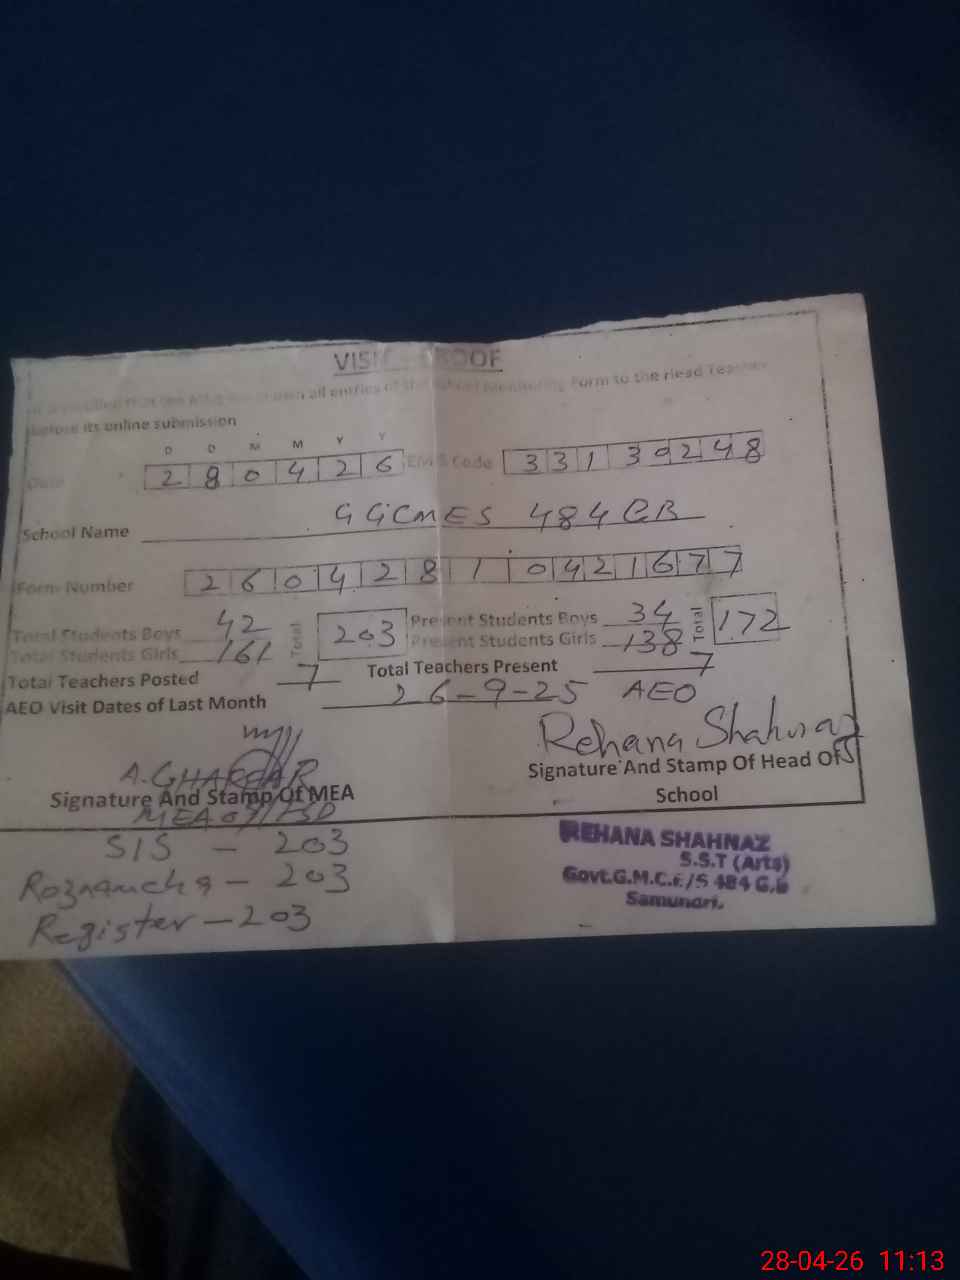 VISIT PROOF
all entries of the School Monitoring Form to the Head Teacher
before its online submission
D D M M Y Y
Date 2 8 0 4 2 6 EMIS Code 3 3 1 3 0 2 4 8
School Name GGCMES 484 GB
Form Number 2 6 0 4 2 8 1 0 4 2 1 6 7 7
Total Students Boys 42 Total 203 Present Students Boys 34 Total 172
Total Students Girls 161 Present Students Girls 138
Total Teachers Posted 7 Total Teachers Present 7
AEO Visit Dates of Last Month 26-9-25 AEO
Rehana Shahnaz
A.GHAFFAR
Signature And Stamp Of MEA Signature And Stamp Of Head Of
School
MEA 07/FSD
SIS - 203
Roznamcha - 203
Register - 203
REHANA SHAHNAZ
S.S.T (Arts)
Govt.G.M.C.E/S 484 G.B
Samundri.
28-04-26 11:13